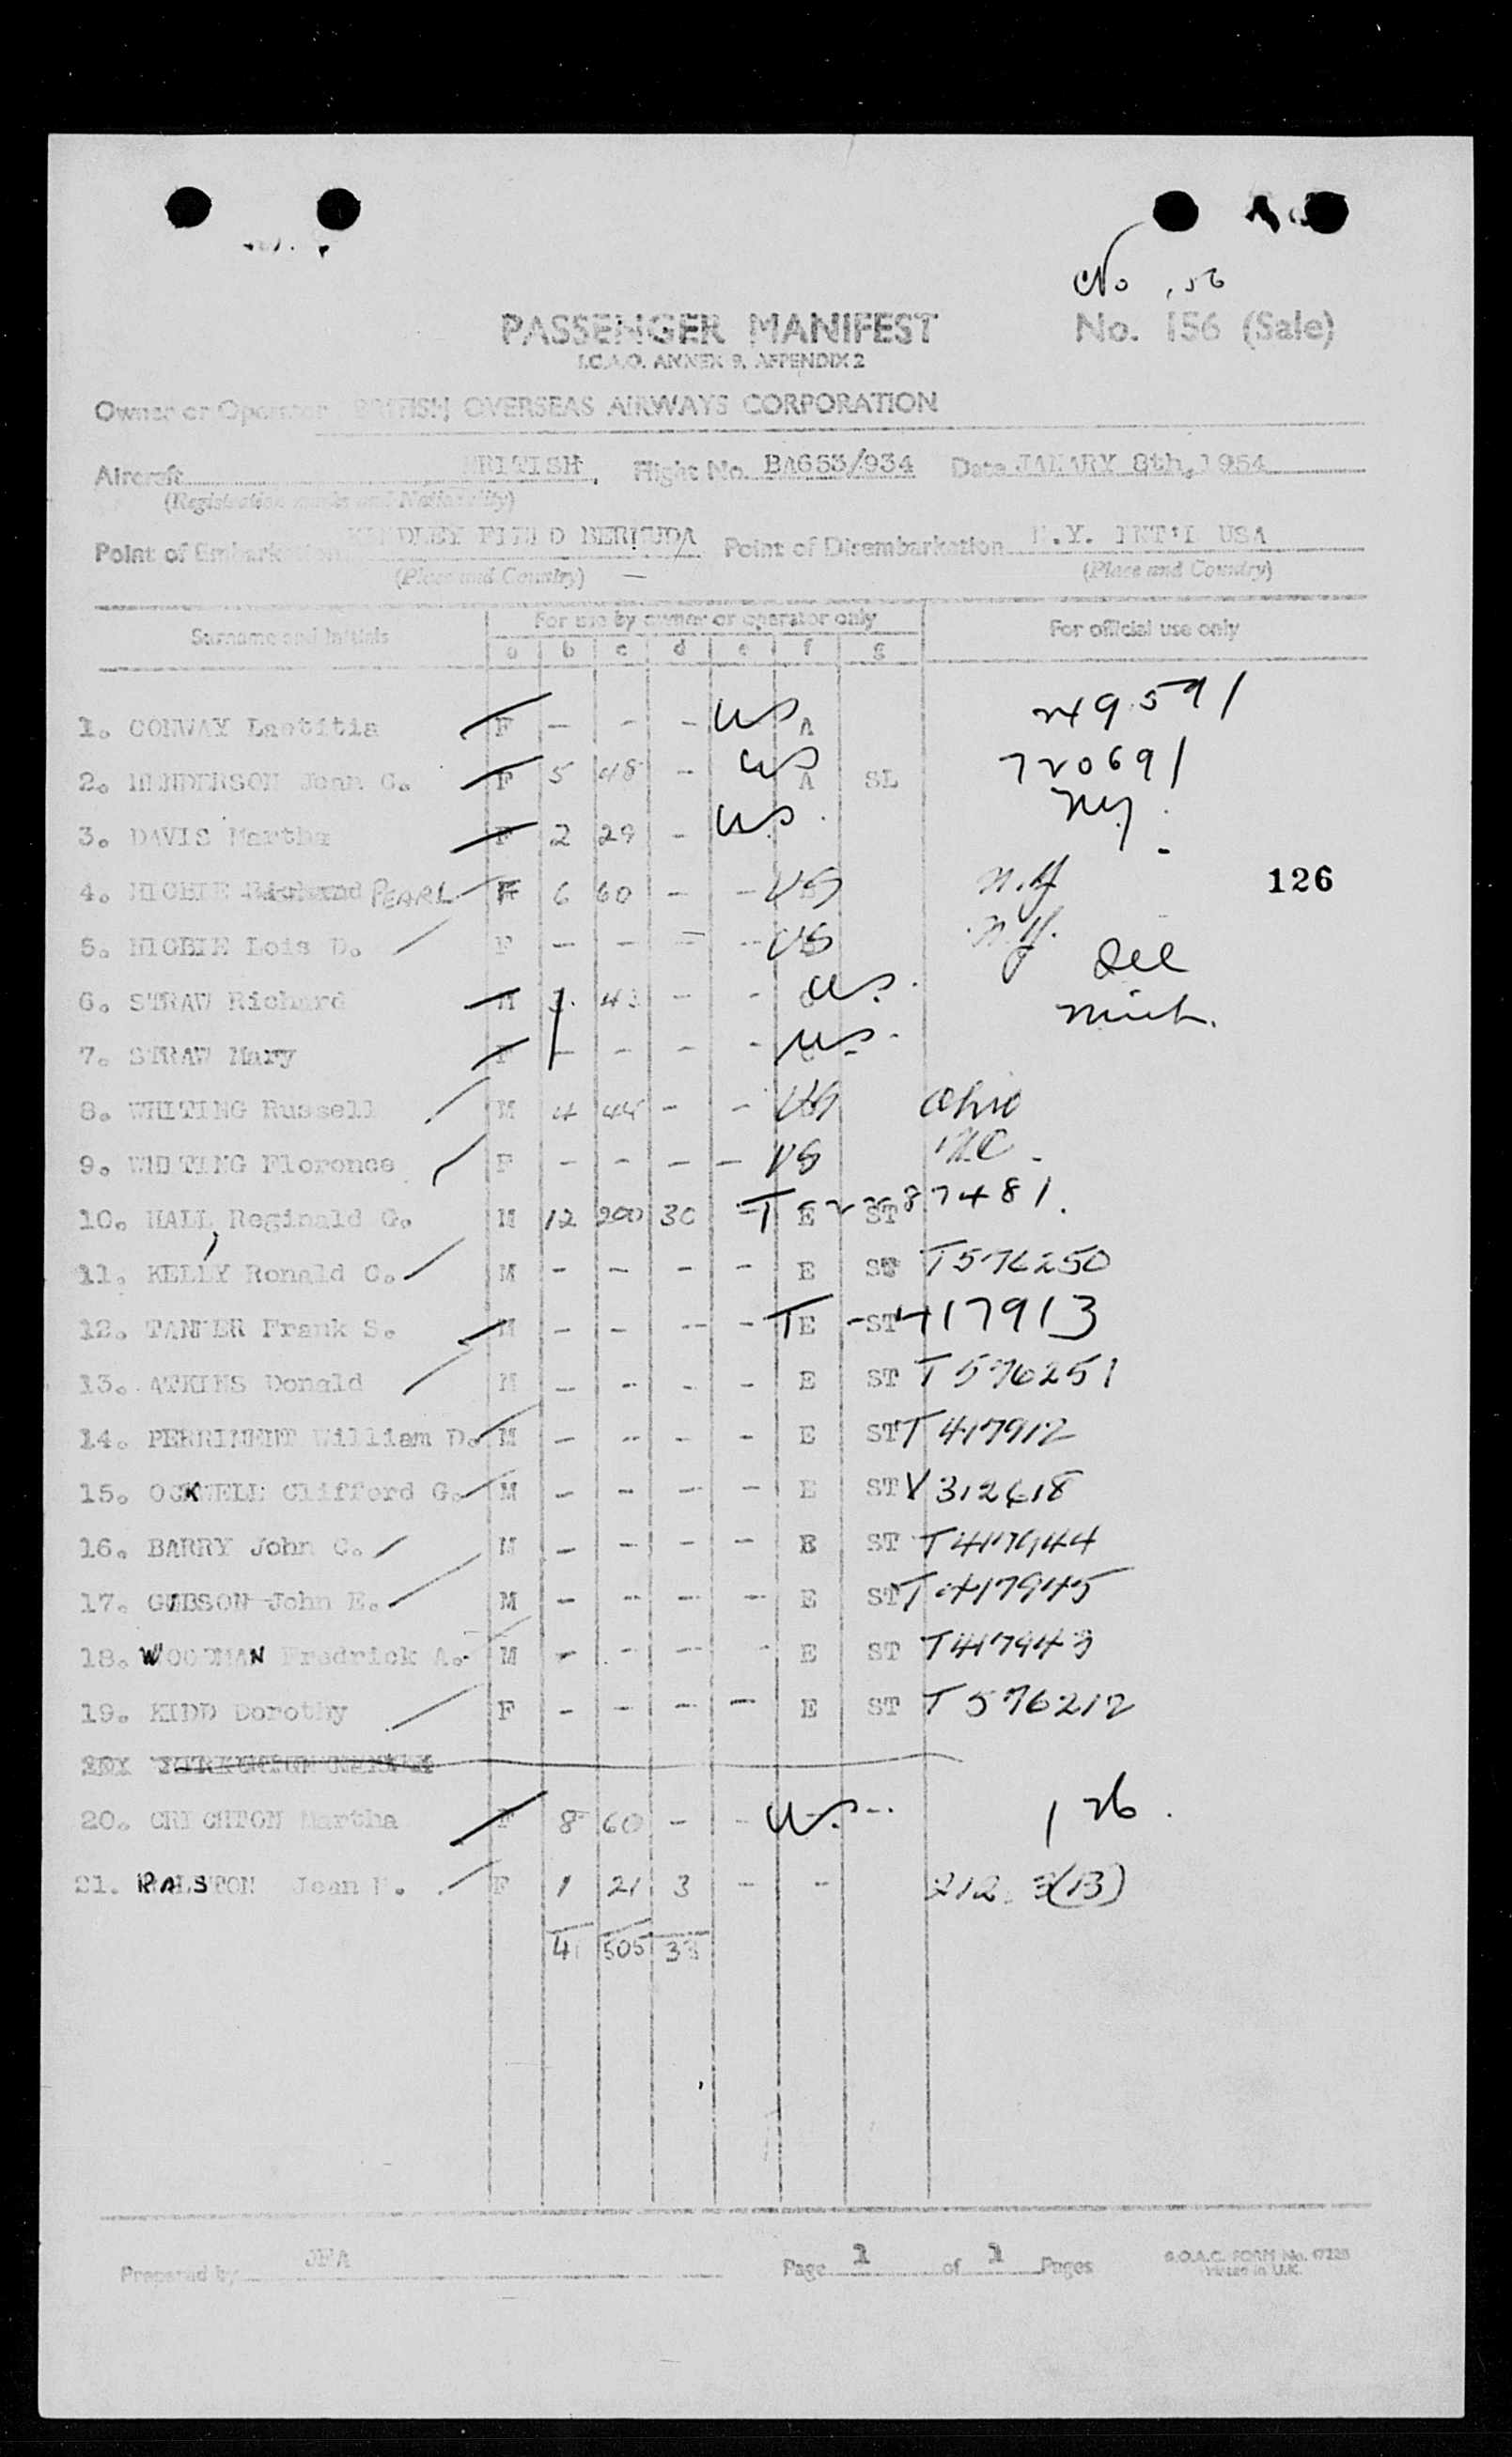 No 156
PASSENGER MANIFEST No. 156 (Sale)
I.C.A.O. ANNEX 9, APPENDIX 2
Owner or Operator BRITISH OVERSEAS AIRWAYS CORPORATION
Aircraft BRITISH, Flight No. BA653/934 Date JANARY 8th, 1954
(Registration marks and Nationality)
Point of Embarkation KINDLEY FIELD BERMUDA Point of Disembarkation N.Y. INT'L USA
(Place and Country) (Place and Country)
Surname and Initials For use by owner or operator only For official use only
a b c d e f g
1. CONWAY Laetitia F - - - US A 249591
2. HENDERSON Jean C. F 5 48 - US A SL 720691
3. DAVIS Martha F 2 29 - US NY
4. HIGBIE Richard PEARL F 6 60 - - US N.Y 126
5. HIGBIE Lois D. F - - - - US N.Y.
6. STRAW Richard M 3 43 - - US. Del
7. STRAW Mary F - - - - US. Mich.
8. WHITING Russell M 4 44 - - US Ohio
9. WHITING Florence F - - - - US N.C.
10. HALL, Reginald G. M 12 200 30 T E ST 2287481.
11. KELLY Ronald C. M - - - - E ST T576250
12. TANNER Frank S. M - - - - T E - ST 417913
13. ATKINS Donald M - - - - E ST T576251
14. PERRIMENT William D. M - - - - E ST T417912
15. OCKWELL Clifford G. M - - - - E ST V312618
16. BARRY John C. M - - - - E ST T417944
17. GIBSON John E. M - - - - E ST T417945
18. WOODMAN Fredrick A. M - - - - E ST T417943
19. KIDD Dorothy F - - - - E ST T576212
20. CRICHTON Martha F 8 60 - - US - 126.
21. RALSTON Jean F 1 21 3 - - 212.3(13)
41 505 33
Prepared by JFA Page 1 of 1 Pages B.O.A.C. FORM No. 17225
Printed in U.K.